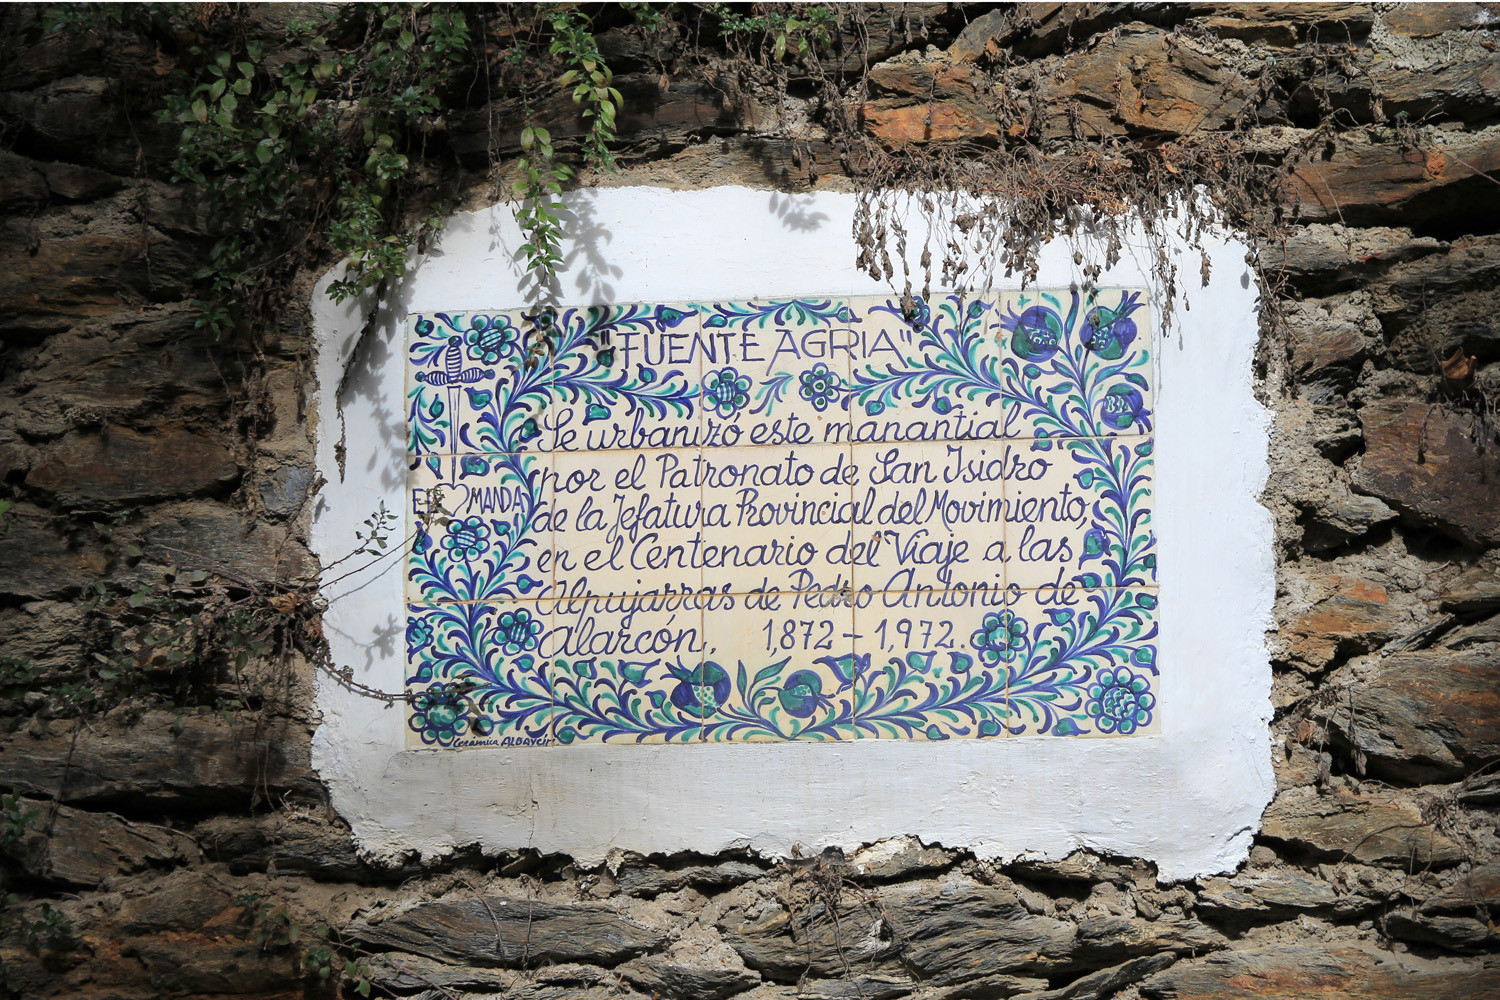 "FUENTE AGRIA"
Se urbanizo este manantial
por el Patronato de San Isidro
de la Jefatura Provincial del Movimiento,
en el Centenario del Viaje a las
Alpujarras de Pedro Antonio de
Alarcón, 1,872 - 1,972.
EL MANDA
Cerámica ALBAYCIN